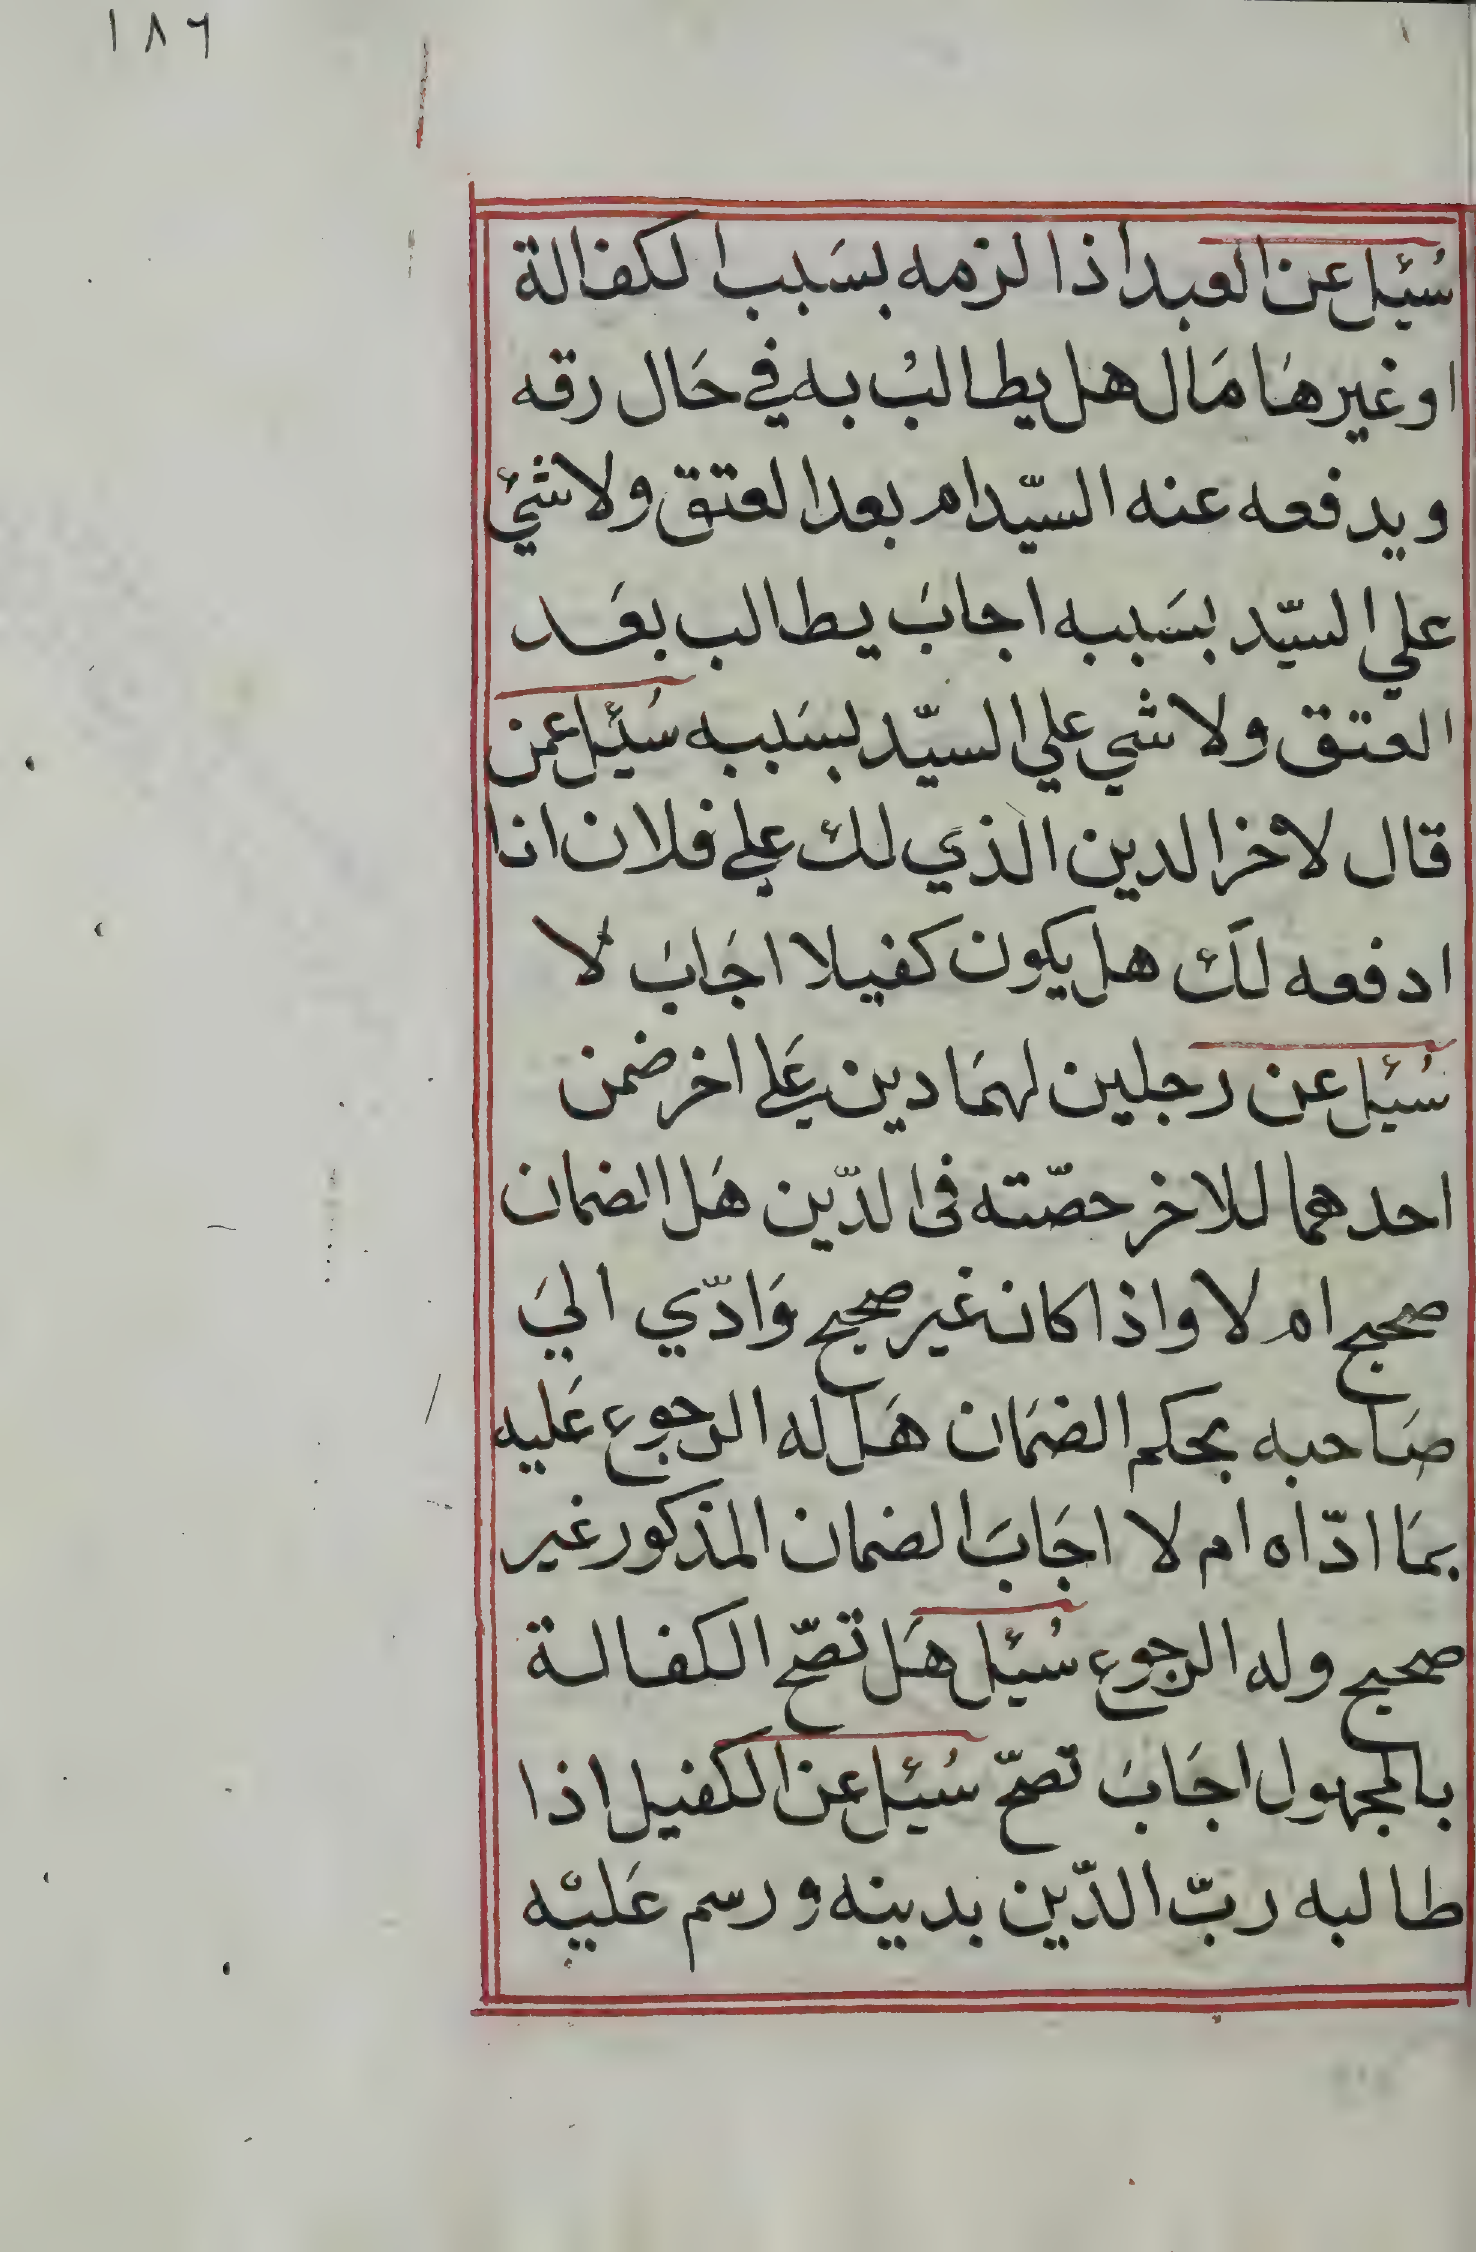 ١٨٦
سُئِل عن العبد اذا لزمه بسَبب الكفالة
او غيرهَا مَال هل يطالبُ به في حَال رقه
ويدفعه عنه السيّد ام بعد العتق ولا شئ
علي السيّد بسَببه اجابَ يطالب بعَد
العتق ولا شي علي السيّد بسَببه سُئِل عمن
قال لاخر الدين الذي لك علي فلان انا
ادفعه لَك هل يكون كفيلا اجَابَ لا
سُئِل عن رجلين لهمَا دين عَلي اخر ضمن
احدهما للاخر حصّته فى الدّين هَل الضمان
صحيح ام لا واذا كان غير صحيح وَادّي اليَ
صَاحبه بحكم الضمَان هَل له الرجوع عَليه
بمَا ادّاه ام لا اجَابَ الضمان المذكور غير
صحيح وله الرجوع سُئِل هَل تصّح الكفالة
بالمجهول اجَابَ تصحّ سُئِل عن الكفيل اذا
طالبه ربّ الدّين بدينه و رسم عَليْه